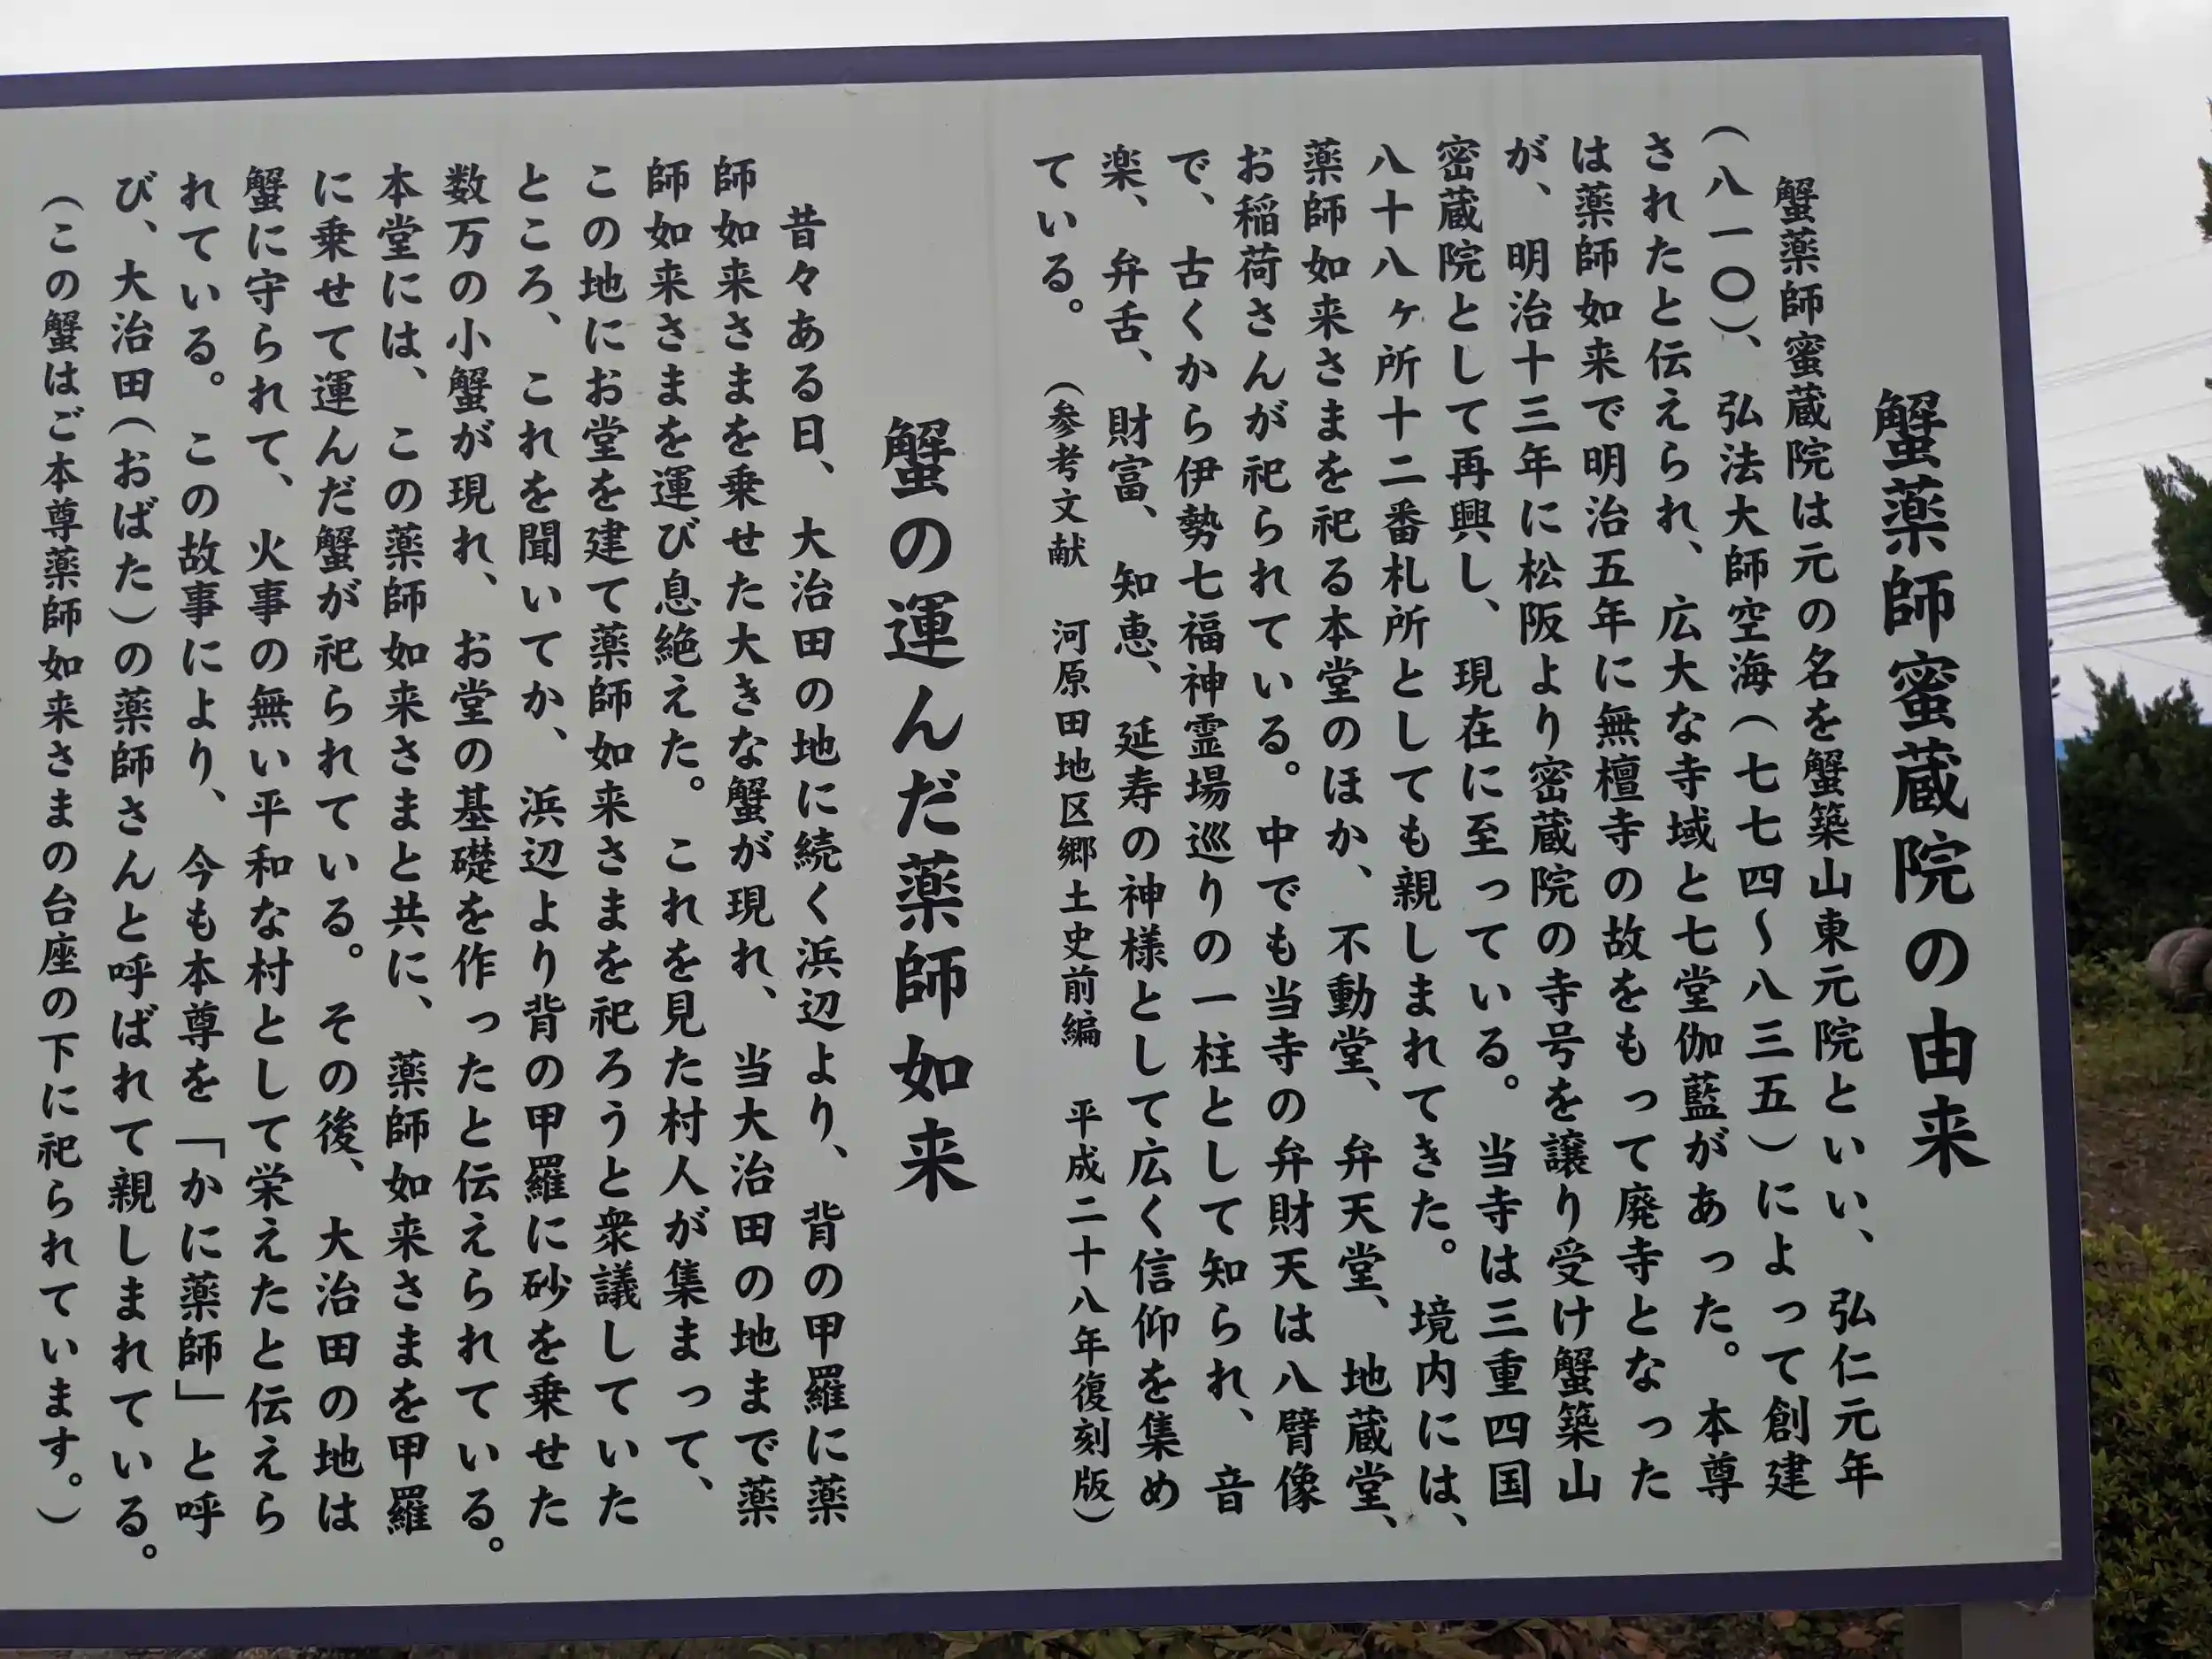 蟹薬師蜜蔵院の由来
蟹薬師蜜蔵院は元の名を蟹築山東元院といい、弘仁元年
（八一〇）、弘法大師空海（七七四～八三五）によって創建
されたと伝えられ、広大な寺域と七堂伽藍があった。本尊
は薬師如来で明治五年に無檀寺の故をもって廃寺となった
が、明治十三年に松阪より密蔵院の寺号を譲り受け蟹築山
密蔵院として再興し、現在に至っている。当寺は三重四国
八十八ヶ所十二番札所としても親しまれてきた。境内には、
薬師如来さまを祀る本堂のほか、不動堂、弁天堂、地蔵堂、
お稲荷さんが祀られている。中でも当寺の弁財天は八臂像
で、古くから伊勢七福神霊場巡りの一柱として知られ、音
楽、弁舌、財富、知恵、延寿の神様として広く信仰を集め
ている。（参考文献　河原田地区郷土史前編　平成二十八年復刻版）
蟹の運んだ薬師如来
昔々ある日、大治田の地に続く浜辺より、背の甲羅に薬
師如来さまを乗せた大きな蟹が現れ、当大治田の地まで薬
師如来さまを運び息絶えた。これを見た村人が集まって、
この地にお堂を建て薬師如来さまを祀ろうと衆議していた
ところ、これを聞いてか、浜辺より背の甲羅に砂を乗せた
数万の小蟹が現れ、お堂の基礎を作ったと伝えられている。
本堂には、この薬師如来さまと共に、薬師如来さまを甲羅
に乗せて運んだ蟹が祀られている。その後、大治田の地は
蟹に守られて、火事の無い平和な村として栄えたと伝えら
れている。この故事により、今も本尊を「かに薬師」と呼
び、大治田（おばた）の薬師さんと呼ばれて親しまれている。
（この蟹はご本尊薬師如来さまの台座の下に祀られています。）